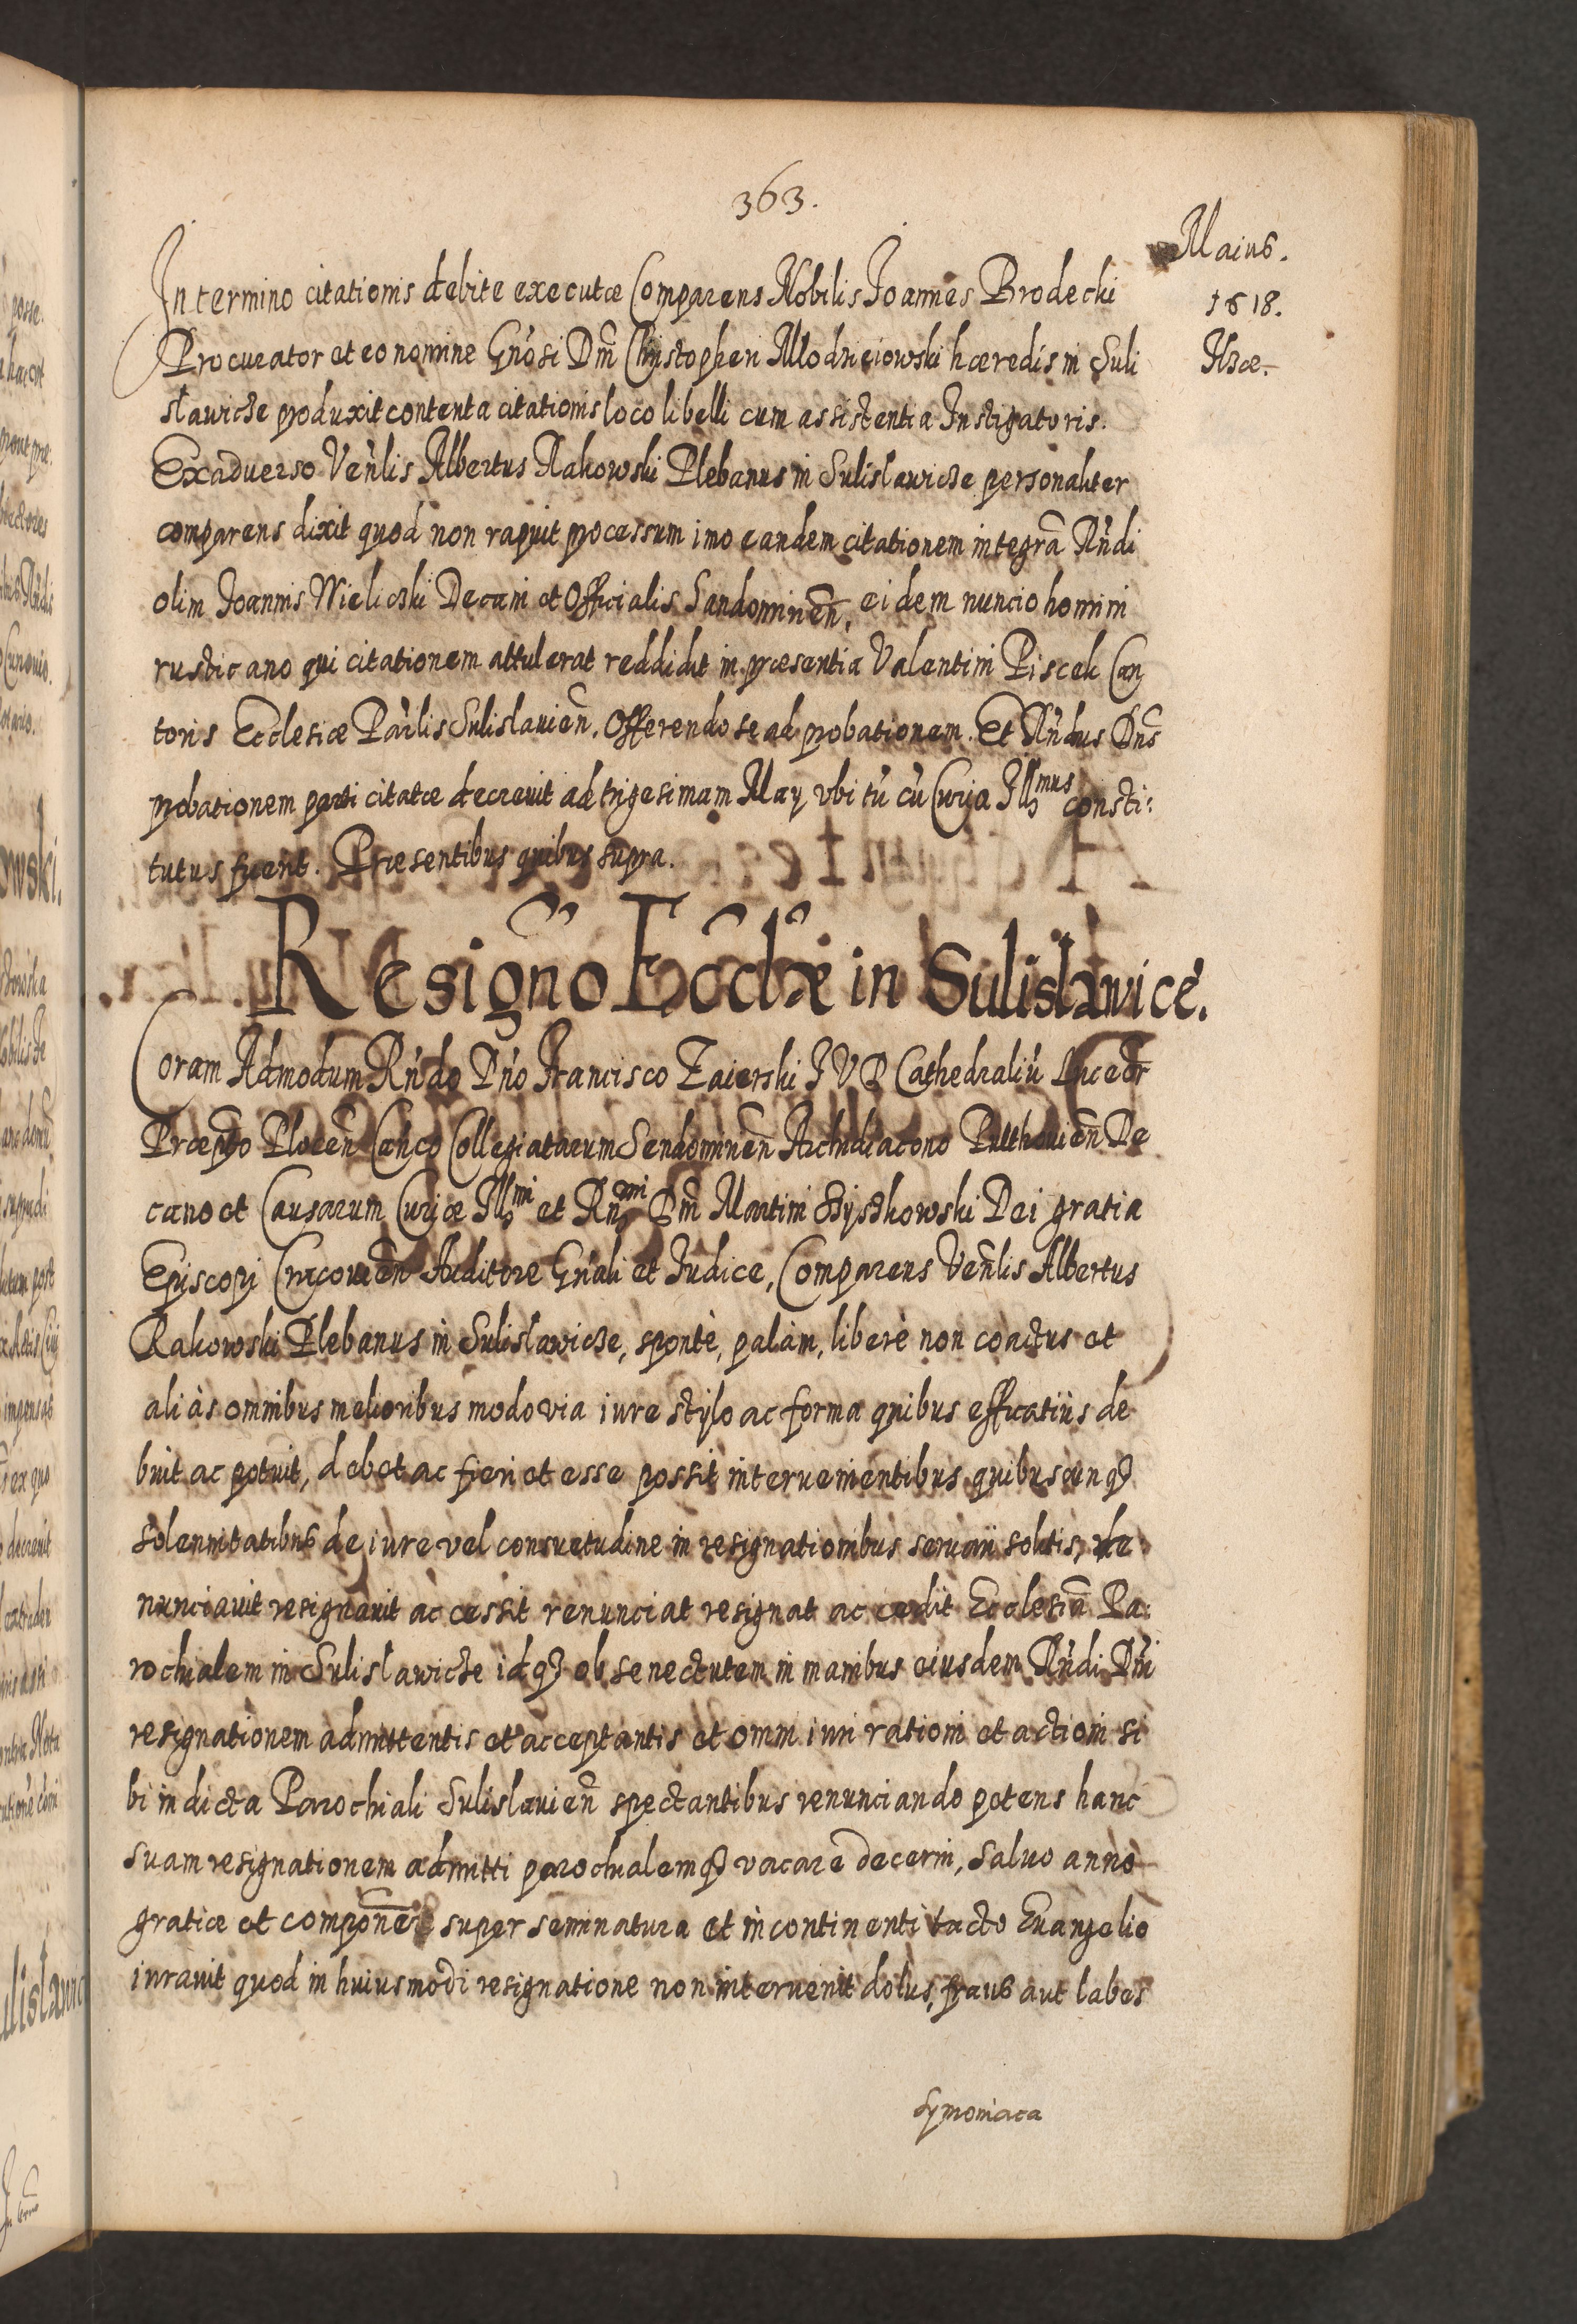 363.
Maius.
1618.
Ilzæ.
In termino citationis debite executæ Comparens Nobilis Joannes Brodecki
Procurator et eo nomine Gnosi Dni Christopheri Mlodzieiowski hæredis in Suli
slawicze produxit contenta citationis loco libelli cum assistentia Instigatoris.
Ex adverso Venlis Albertus Rakowski Plebanus in Sulislawicze personaliter
comparens dixit quod non rapuit processum imo eandem citationem integrã Rndi
olim Joannis Wieliczki Decani et Officialis Sandomirien̄, eidem nuncio homini
rusticano qui citationem attulerat reddidit in præsentia Valentini Piscek Can
toris Ecclesiæ Parlis Sulislauien̄. Offerendo se ad probationem. Et Rndus Dns
probationem parti citatæ decreuit ad trigesimam May vbi tu cu Curia Illmus consti:
tutus fuerit. Præsentibus quibus supra.
Resigno Ecclæ in Sulislawice.
Coram Admodum Rndo Dno Francisco Zaierski JVD Cathedraliu
Præpto Plocen̄ Canco Collegiatarum Sendomirien̄ Archidiacono Pilthouien̄ De
cano et Causarum Curiæ Illmi et Rnmi Dni Martini Szyszkowski Dei gratia
Episcopi Cracouien̄ Auditore Gnali et Iudice, Comparens Venlis Albertus
Rakowski Plebanus in Sulislawicze, spontè, palàm, liberè non coactus et
aliàs omnibus melioribus modo via iure stylo ac forma quibus efficatiùs de
buit ac potuit, debet ac fieri et esse possit interuenientibus quibuscunq3
solennitatibus de iure vel consuetudine in resignationibus seruari solitis, re
nunciauit resignauit ac cessit renunciat resignat ac cedit Ecclesiã Pa:
rochialem in Sulislawicze idq3 ob senectutem in manibus eiusdem Rndi Dni
resignationem admittentis et acceptantis et omni iuri rationi et actioni si
bi in dicta Parochiali Sulislauien̄ spectantibus renunciando petens hanc
suam resignationem admitti parochialemq3 vacare decerni, saluo anno
gratiæ et componere super seminatura et in continenti tacto Euangelio
iurauit quod in huiusmodi resignatione non interuenit dolus, fraus aut labes
symoniaca